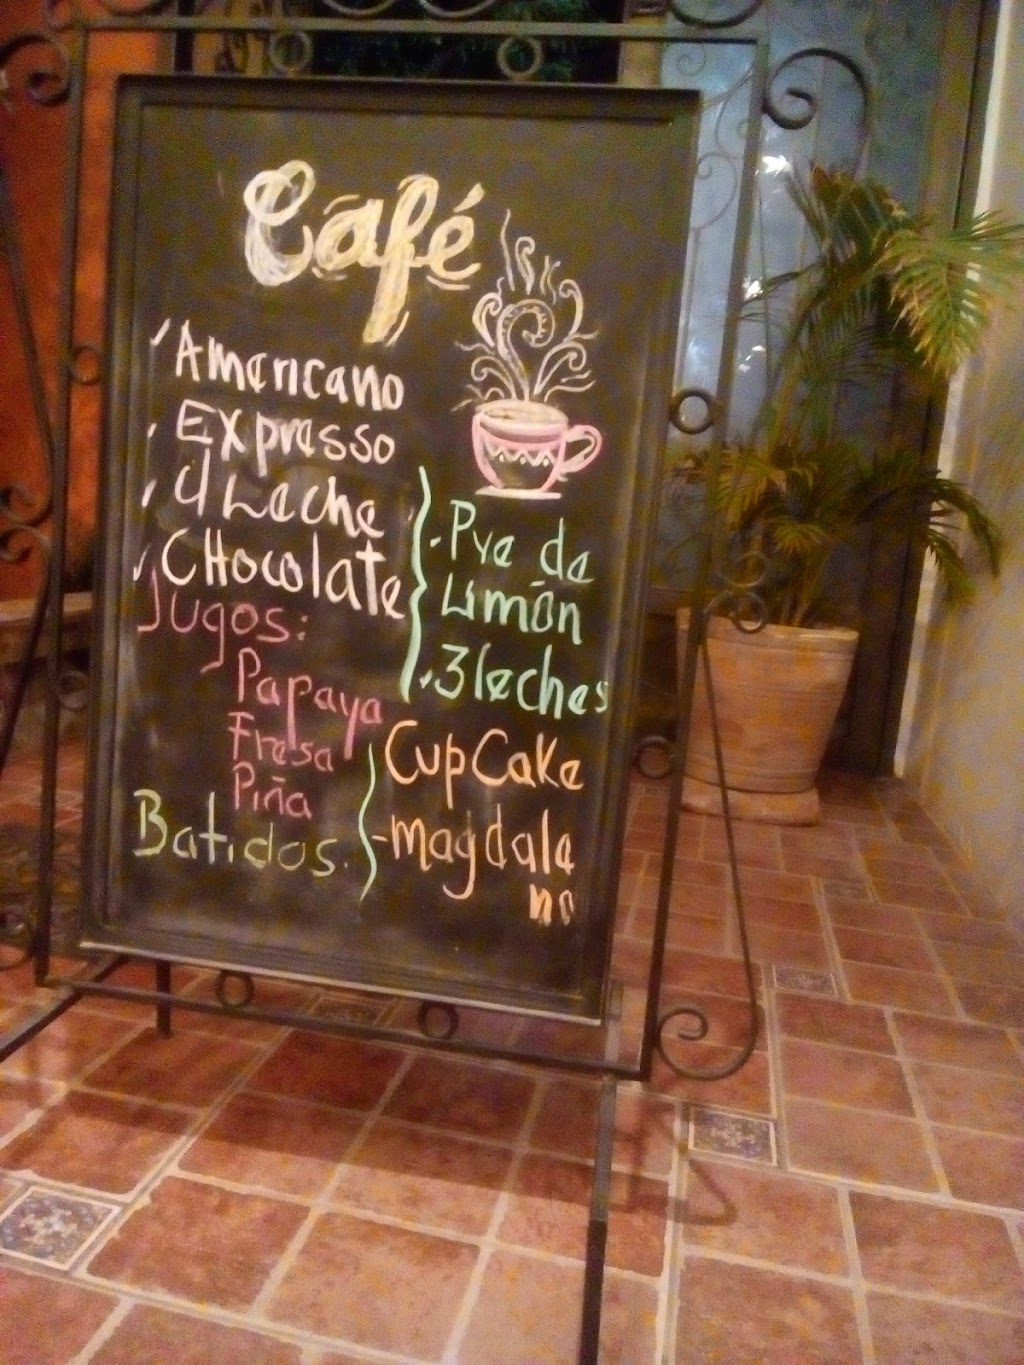 Café
Americano
Expresso
d Leche
CHocolate
Jugos:
Papaya
Fresa
Piña
Batidos.
-Pye de
Limón
.3 leches
CupCake
-magdale
na